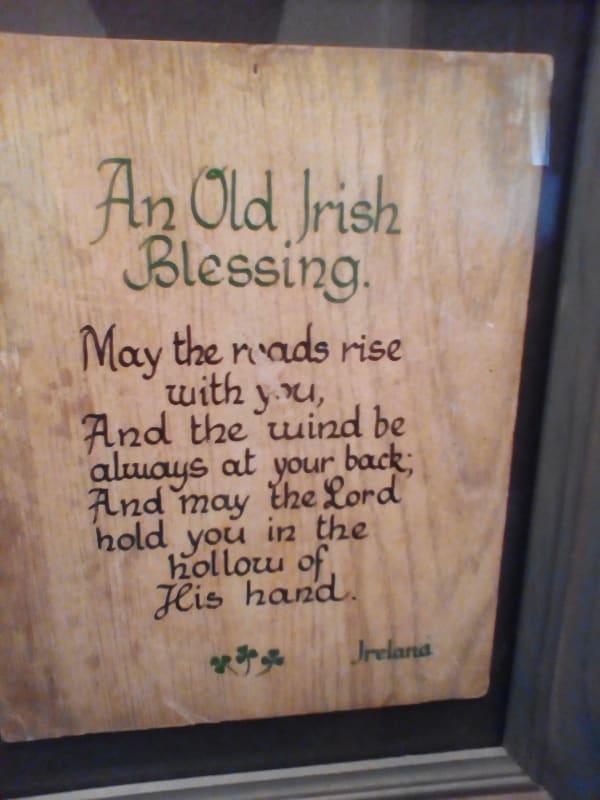 An Old Irish
Blessing.
May the roads rise
with you,
And the wind be
always at your back;
And may the Lord
hold you in the
hollow of
His hand.
Ireland